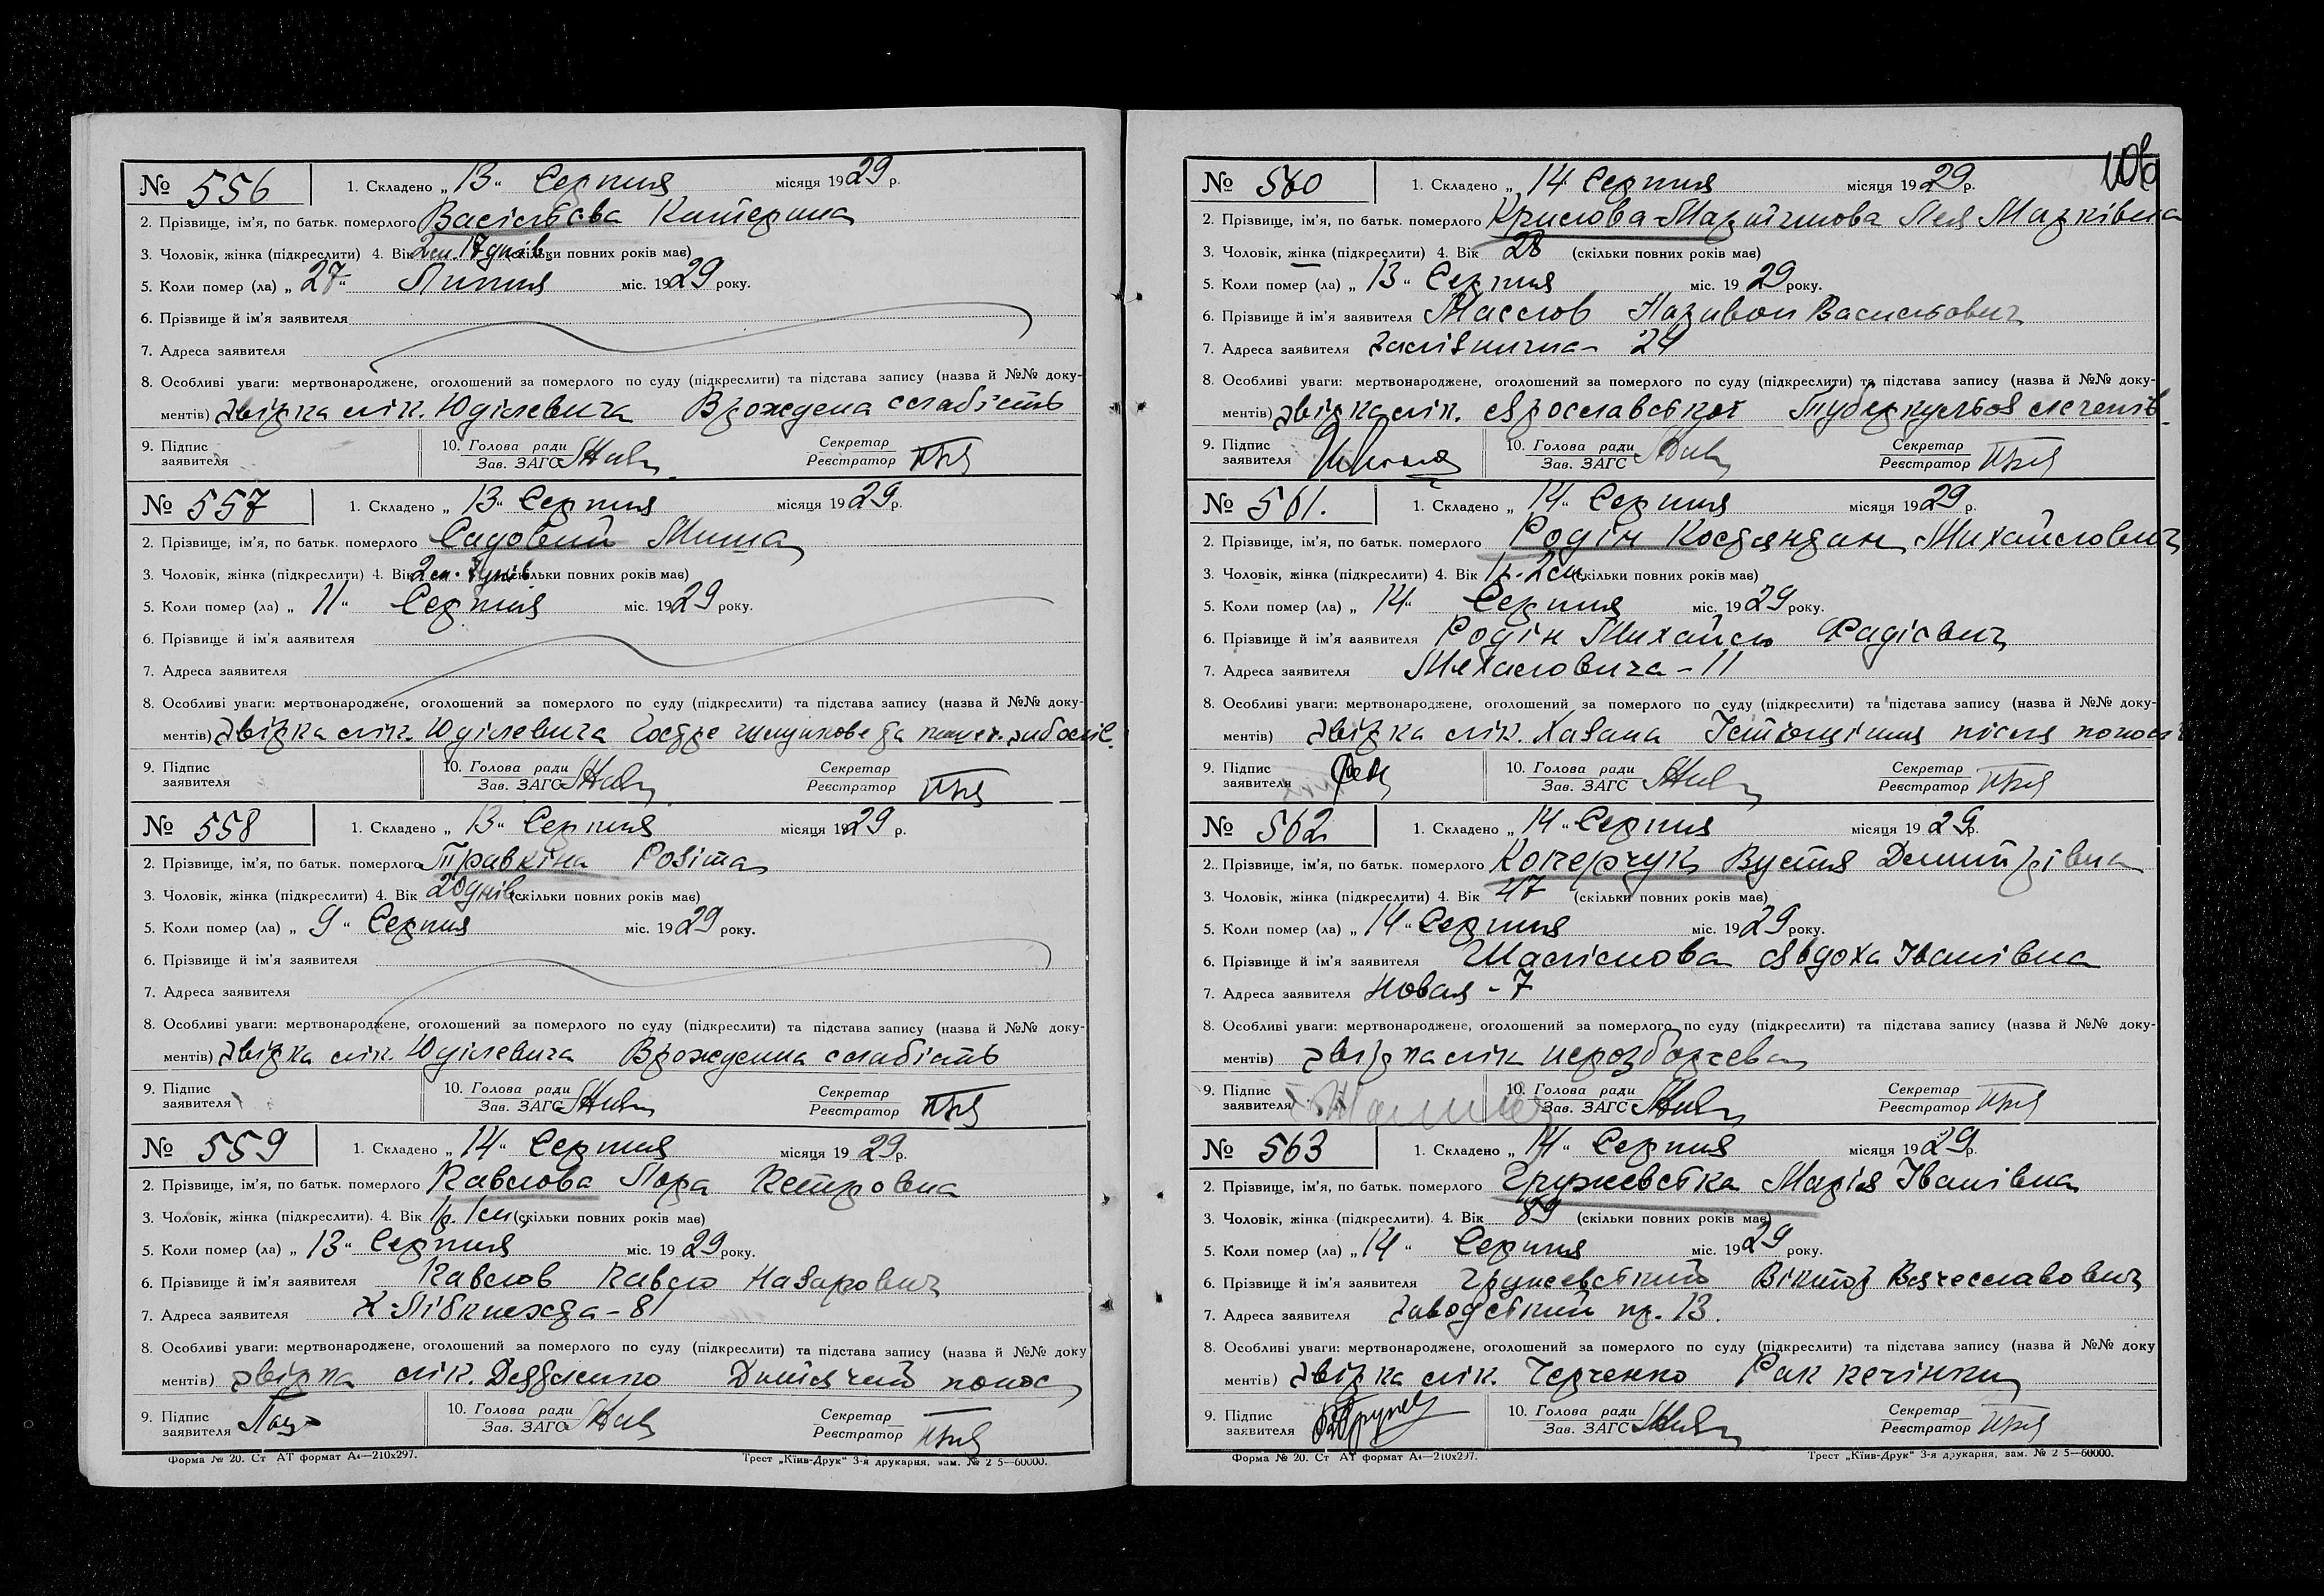 № 556 1. Складено „13“ Серпня місяця 1929 р.
2. Прізвище, ім'я, по батьк. померлого Васільєва Катерина
3. Чоловік, жінка (підкреслити) 4. Вік 2 м. 17 днів (скільки повних років має)
5. Коли помер (ла) „27“ Липня міс. 1929 року.
6. Прізвище й ім'я заявителя
7. Адреса заявителя
8. Особливі уваги: мертвонароджене, оголошений за померлого по суду (підкреслити) та підстава запису (назва й №№ доку-
ментів) Довідка лік. Юділевича Врождена слабість
9. Підпис заявителя 10. Голова ради Зав. ЗАГС Секретар Реєстратор
№ 557 1. Складено „13“ Серпня місяця 1929 р.
2. Прізвище, ім'я, по батьк. померлого Садовий Миша
3. Чоловік, жінка (підкреслити) 4. Вік 2 м. днів (скільки повних років має)
5. Коли помер (ла) „11“ Серпня міс. 1929 року.
6. Прізвище й ім'я заявителя
7. Адреса заявителя
8. Особливі уваги: мертвонароджене, оголошений за померлого по суду (підкреслити) та підстава запису (назва й №№ доку-
ментів) Довідка лік. Юділевича Гостре шлункове та
9. Підпис заявителя 10. Голова ради Зав. ЗАГС Секретар Реєстратор
№ 558 1. Складено „13“ Серпня місяця 1929 р.
2. Прізвище, ім'я, по батьк. померлого Травкіна Розіта
3. Чоловік, жінка (підкреслити) 4. Вік 20 днів (скільки повних років має)
5. Коли помер (ла) „9“ Серпня міс. 1929 року.
6. Прізвище й ім'я заявителя
7. Адреса заявителя
8. Особливі уваги: мертвонароджене, оголошений за померлого по суду (підкреслити) та підстава запису (назва й №№ доку-
ментів) Довідка лік. Юділевича Врожденна слабість
9. Підпис заявителя 10. Голова ради Зав. ЗАГС Секретар Реєстратор
№ 559 1. Складено „14“ Серпня місяця 1929 р.
2. Прізвище, ім'я, по батьк. померлого Павлова Лора Петровна
3. Чоловік, жінка (підкреслити). 4. Вік 1 р. 1 м. (скільки повних років має)
5. Коли помер (ла) „13“ Серпня міс. 1929 року.
6. Прізвище й ім'я заявителя Павлов Павло Назарович
7. Адреса заявителя К. Лібкнехта - 81
8. Особливі уваги: мертвонароджене, оголошений за померлого по суду (підкреслити) та підстава запису (назва й №№ доку
ментів) Довідка лік. Дитячий понос
9. Підпис заявителя 10. Голова ради Зав. ЗАГС Секретар Реєстратор
Форма № 20. Ст АТ формат А4—210x297. Трест „Київ-Друк“ 3-я друкарня, зам. № 2 5—60000.
106
№ 560 1. Складено „14 Серпня місяця 1929 р.
2. Прізвище, ім'я, по батьк. померлого Крилова Лея Марківна
3. Чоловік, жінка (підкреслити) 4. Вік 28 (скільки повних років має)
5. Коли помер (ла) „13“ Серпня міс. 1929 року.
6. Прізвище й ім'я заявителя Маслов Василь��вич
7. Адреса заявителя Залізнична - 29
8. Особливі уваги: мертвонароджене, оголошений за померлого по суду (підкреслити) та підстава запису (назва й №№ доку-
ментів) Довідка лік. Ярославської Туберкульоз легенів
9. Підпис заявителя 10. Голова ради Зав. ЗАГС Секретар Реєстратор
№ 561. 1. Складено „14“ Серпня місяця 1929 р.
2. Прізвище, ім'я, по батьк. померлого Родін Костянтин Михайлович
3. Чоловік, жінка (підкреслити) 4. Вік 1 р. 2 м. (скільки повних років має)
5. Коли помер (ла) „14“ Серпня міс. 1929 року.
6. Прізвище й ім'я заявителя Родін Михайло Фадієвич
7. Адреса заявителя Михаловича - 11
8. Особливі уваги: мертвонароджене, оголошений за померлого по суду (підкреслити) та підстава запису (назва й №№ доку-
ментів) Довідка лік. Хазана після
9. Підпис заявителя 10. Голова ради Зав. ЗАГС Секретар Реєстратор
№ 562 1. Складено „14“ Серпня місяця 1929 р.
2. Прізвище, ім'я, по батьк. померлого Кочерчук Вустя Дмитрівна
3. Чоловік, жінка (підкреслити) 4. Вік 47 (скільки повних років має)
5. Коли помер (ла) „14“ Серпня міс. 1929 року.
6. Прізвище й ім'я заявителя Явдоха Іванівна
7. Адреса заявителя Новая - 7
8. Особливі уваги: мертвонароджене, оголошений за померлого по суду (підкреслити) та підстава запису (назва й №№ доку-
ментів) Довідка лік нерозборчева
9. Підпис заявителя 10. Голова ради Зав. ЗАГС Секретар Реєстратор
№ 563 1. Складено „14“ Серпня місяця 1929 р.
2. Прізвище, ім'я, по батьк. померлого Гружевська Марія Іванівна
3. Чоловік, жінка (підкреслити). 4. Вік 89 (скільки повних років має)
5. Коли помер (ла) „14“ Серпня міс. 1929 року.
6. Прізвище й ім'я заявителя Гружевський Віктор Вячеславович
7. Адреса заявителя Заводський пр. 13.
8. Особливі уваги: мертвонароджене, оголошений за померлого по суду (підкреслити) та підстава запису (назва й №№ доку
ментів) Довідка лік. Черченко Рак печінки
9. Підпис заявителя 10. Голова ради Зав. ЗАГС Секретар Реєстратор
Форма № 20. Ст АТ формат А4—210x297. Трест „Київ-Друк“ 3-я друкарня, зам. № 2 5—60000.